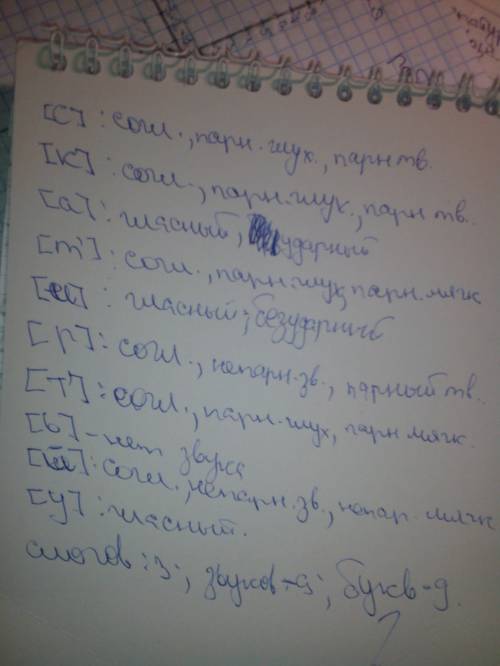 [с] : согл., парн. глух., парн тв.
[к] : согл., парн. глух., парн тв.
[а] : гласный, ударный
[т'] : согл., парн. глух, парн. мягк
[и] : гласный, безударный
[р] : согл., непарн. зв., парный тв.
[т'] : согл., парн. глух, парн мягк.
[ь] - нет звука
[й] : согл., непарн. зв., непар. мягк
[у] : гласный.
слогов : 3; звуков - 9; букв - 9.